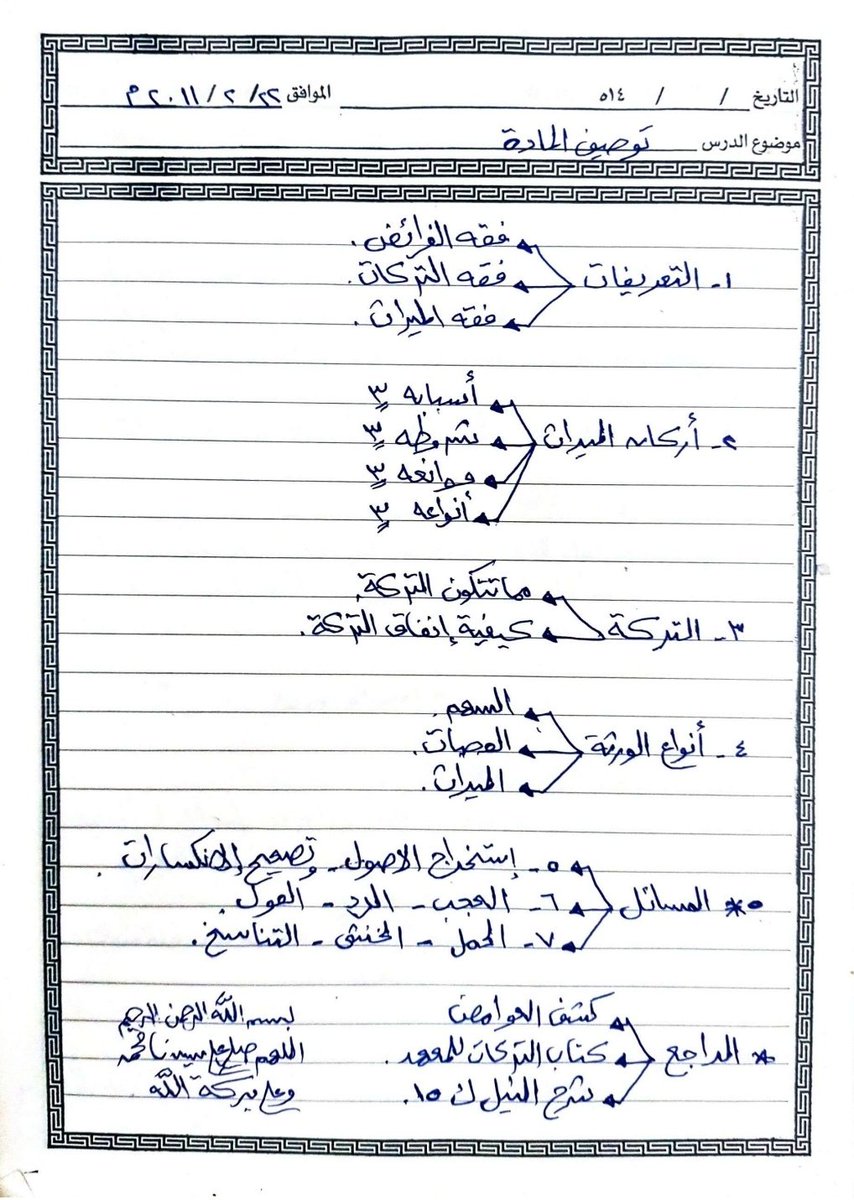 التاريخ / / ١٤هـ الموافق ٢٢/ ٢ / ٢٠١١ م
موضوع الدرس توصيف المادة
فقه الفرائض.
١- التعريفات فقه التركات.
فقه الميراث.
أسبابه ٣
٢- أركان الميراث شروطه ٣
موانعه ٣
أنواعه ٣
مما تتكون التركة.
٣- التركة كيفية إنفاق التركة.
السهم.
٤- أنواع الورثة العصبات.
الميراث.
٥- إستخراج الاصول - وتصحيح الانكسارات.
٥* المسائل ٦- الحجب - الرد - العول.
٧- الحمل - الخنثى - التناسخ.
كشف الغوامض بسم الله الرحمن الرحيم
* المراجع كتاب التركات للمعهد. اللهم صل على سيدنا محمد
شرح النيل ك ١٥. وعلى بركة الله